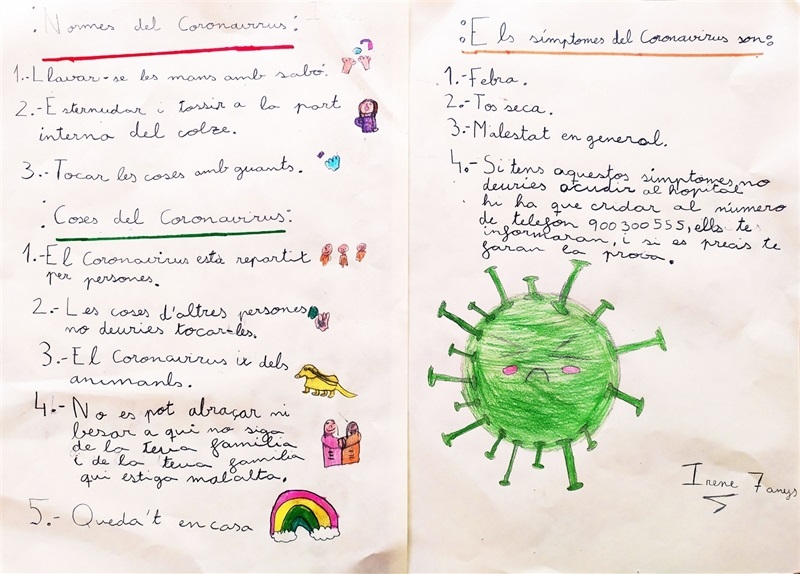 :Normes del Coronavirus:
1.-Llavar-se les mans amb sabó.
2.-Esternudar i tossir a la part
interna del colze.
3.-Tocar les coses amb guants.
:Coses del Coronavirus:
1.-El Coronavirus està repartit
per persones.
2.-Les coses d'altres persones
no deuries tocar-les.
3.-El Coronavirus ix dels
animanls.
4.-No es pot abraçar ni
besar a qui no siga
de la teua família
i de la teua família
qui estiga malalta.
5.-Queda't en casa
:Els símptomes del Coronavirus son:
1.-Febra.
2.-Tos seca.
3.-Malestat en general.
4.-Si tens aquestos símptomes no
deuries acudir al hopital
hi ha que cridar al número
de telefon 900300555, ells te
informaran, i si es precis te
faran la prova.
Irene 7 anys